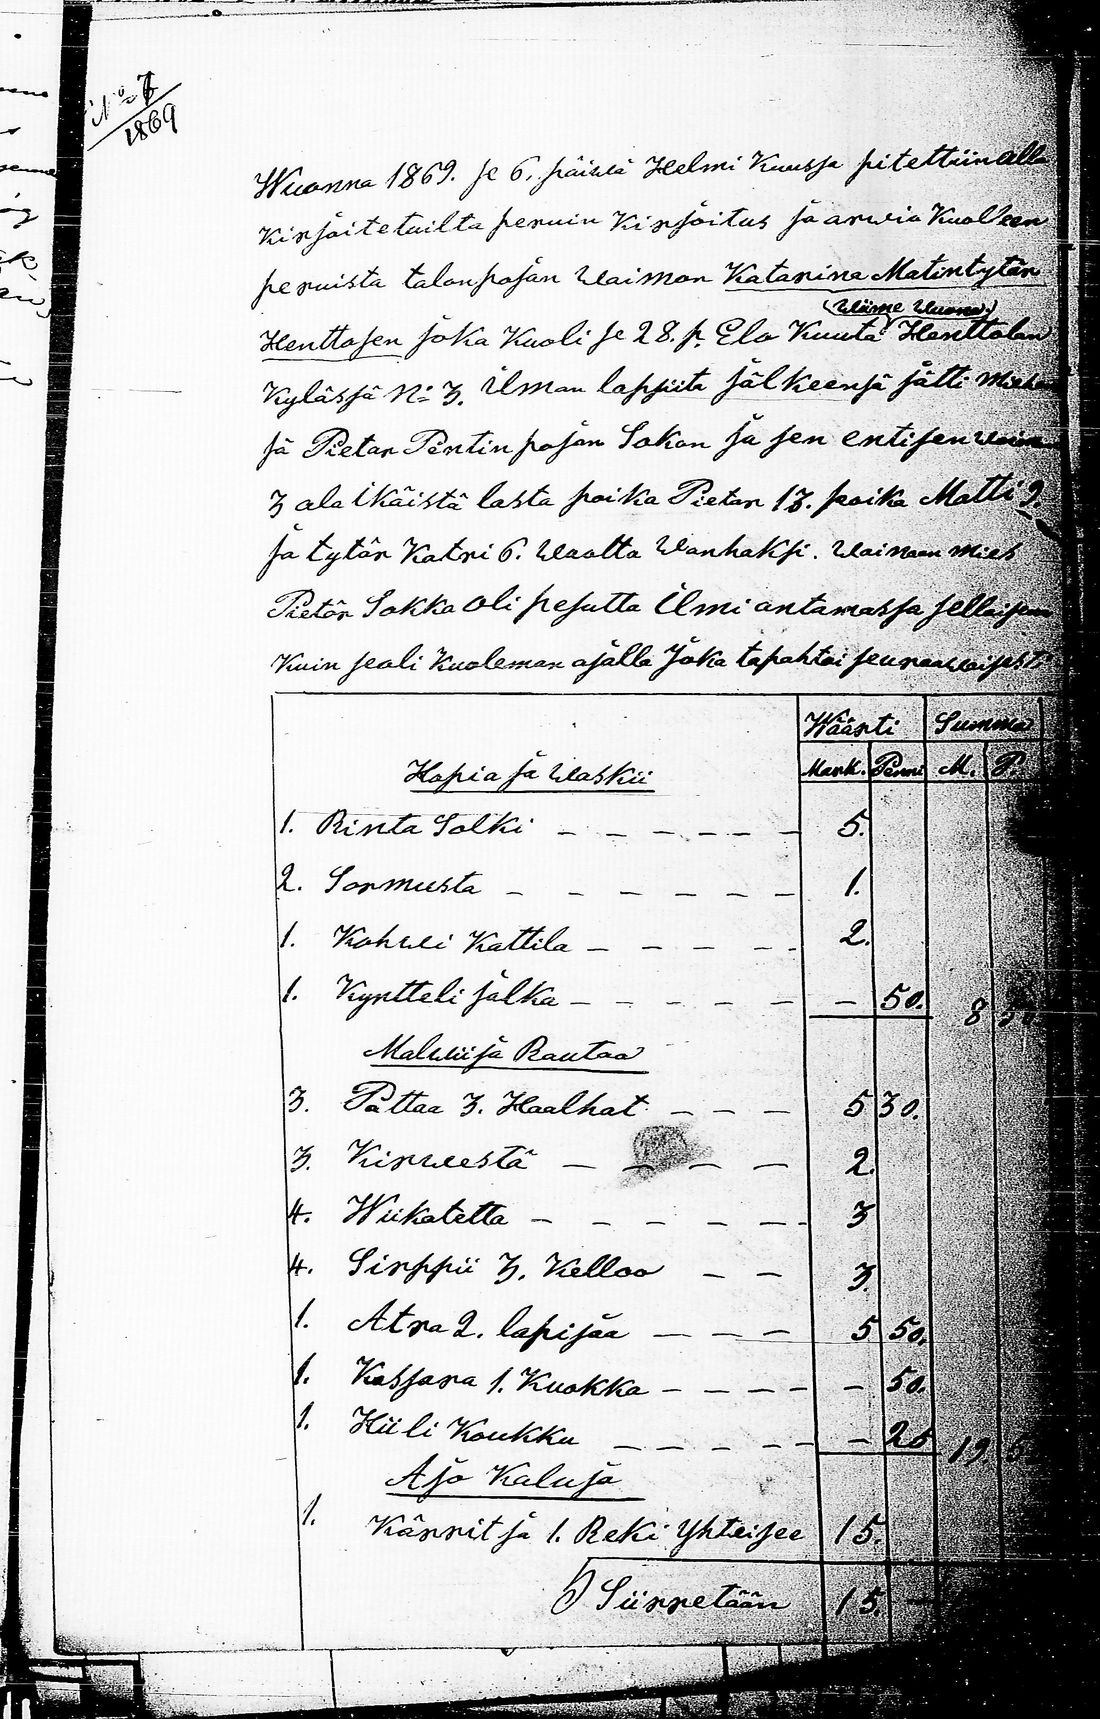 No 7
1869
Wuonna 1869. se 6. päiwä Helmi Kuussa pitettiin alla
Kirjoitetuilta peruin Kirjoitus ja arwio Kuolleen
peruista talonpojan Waimon Katarina Matintytär
(Wiime Wuona.)
Henttosen joka Kuoli se 28. p. Elo Kuuta Henttolan
Kylässä No 3. Ilman lapsiita jälkeensä jätti Miehen
sä Pietar Pentin pojan Sokan ja sen entisen waim
3 ala Ikäistä lasta poika Pietar 13. poika Matti 9.
ja tytär Katri 6. Wuotta Wanhaksi. Waimon mies
Pietär Sokka oli pesutta Ilmi antamassa sellaisen
Kuin seoli Kuoleman ajalla Joka tapahtoi seuraawaisest.
Wäärti Summa
Hopia ja Waskii Mark. Penni M. P.
1. Rinta Solki – – – – – – 5.
2. Sormusta – – – – – – – 1.
1. Kohwi Kattila – – – – – 2.
1. Kyntteli jalka – – – – – – – 50. 8 50
Malwiija Rautaa
3. Pattaa 3. Haalhat – – – 5 30.
3. Kirweestä – – – – – 2.
4. Wiikatetta – – – – – – 3
4. Sirppii 3. Kelloo – – – 3.
1. Atra 2. lapijaa – – – – 5 50.
1. Kassara 1. Kuokka – – – – – 50.
1. Hiili Koukku – – – – – – 25 19. 5
Ajo Kaluja
1. Kärrit ja 1. Reki Yhteisee 15.
Siirretään 15.